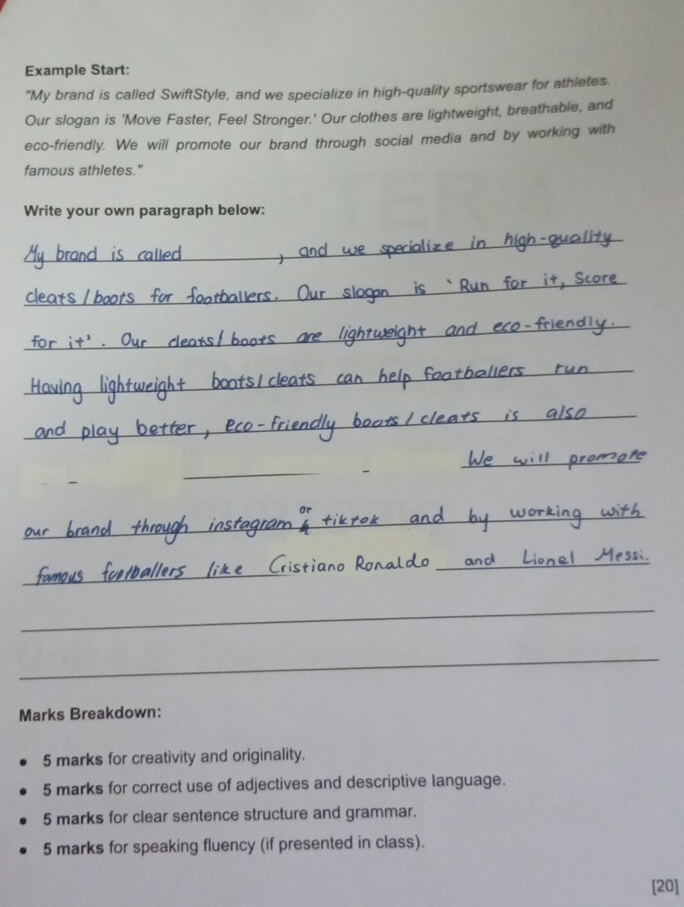 Example Start:
"My brand is called SwiftStyle, and we specialize in high-quality sportswear for athletes.
Our slogan is 'Move Faster, Feel Stronger.' Our clothes are lightweight, breathable, and
eco-friendly. We will promote our brand through social media and by working with
famous athletes."
Write your own paragraph below:
My brand is called , and we specialize in high-quality
cleats/boots for footballers. Our slogan is 'Run for it, Score
for it'. Our cleats/boots are lightweight and eco-friendly.
Having lightweight boots/cleats can help footballers run
and play better, eco-friendly boots/cleats is also
We will promote
our brand through instagram or tiktok and by working with
famous footballers like Cristiano Ronaldo and Lionel Messi.
Marks Breakdown:
• 5 marks for creativity and originality.
• 5 marks for correct use of adjectives and descriptive language.
• 5 marks for clear sentence structure and grammar.
• 5 marks for speaking fluency (if presented in class).
[20]